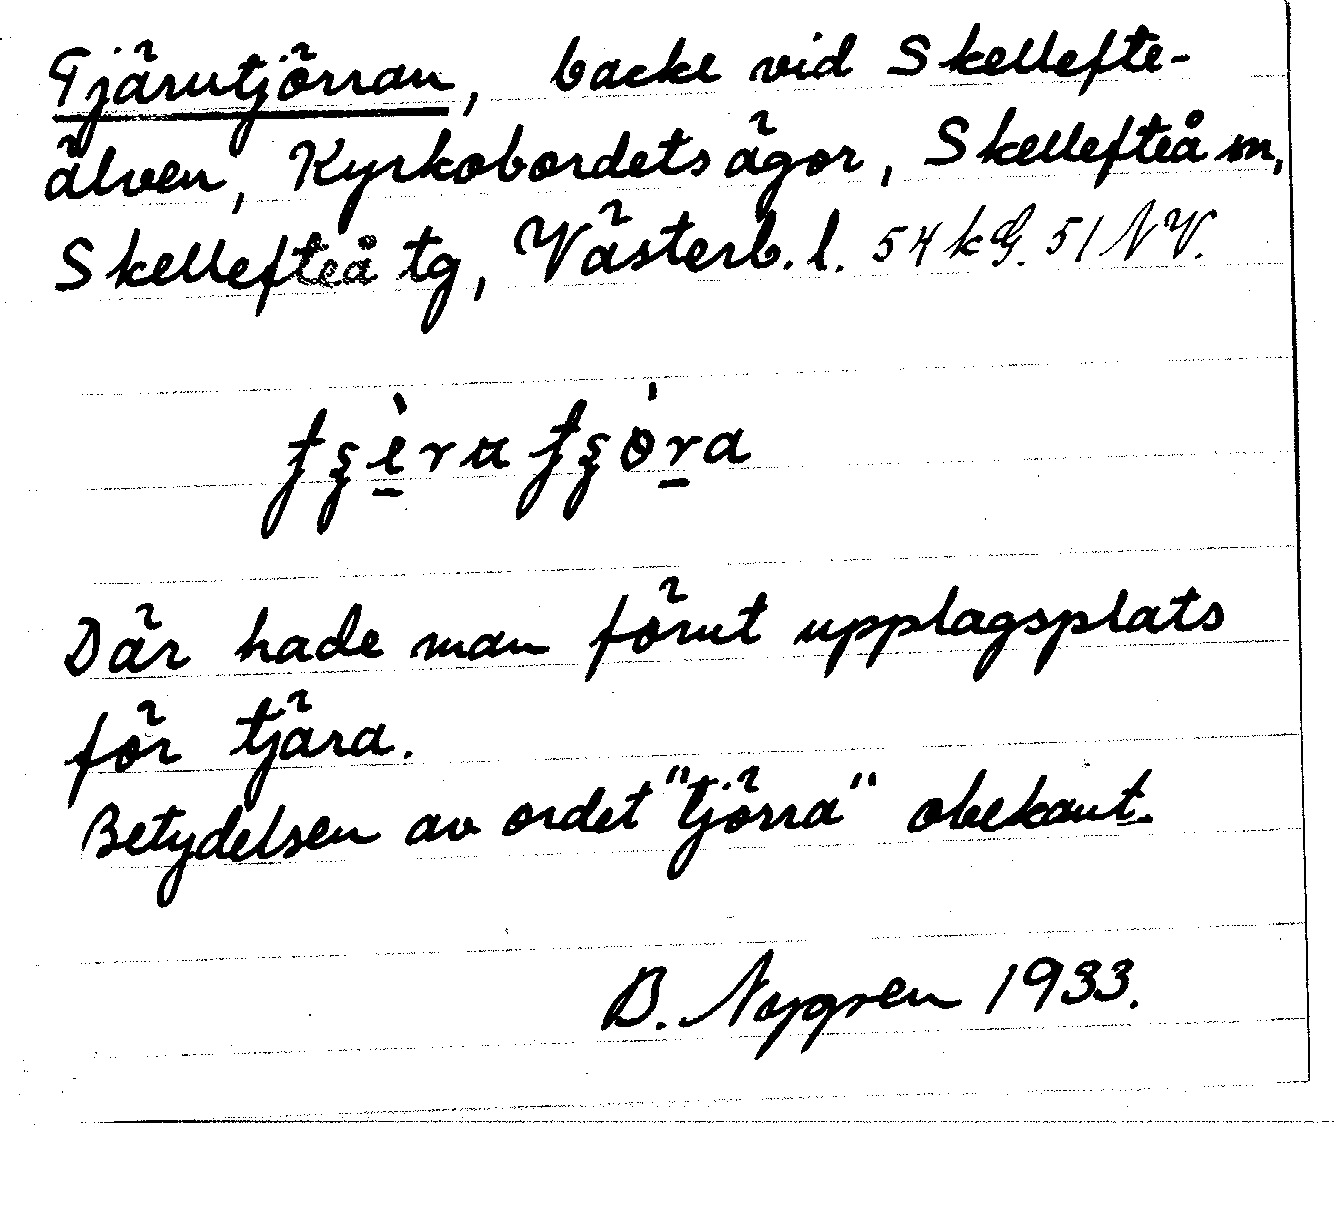 Tjärutjörran, backe vid Skellefte-
älven, Kyrkobordets ägor, Skellefteå sn,
Skellefteå tg, Västerb. l. 54 kG. 51 NV.
Där hade man förut upplagsplats
för tjära.
Betydelsen av ordet "tjörra" obekant.
B. Nygren 1933.